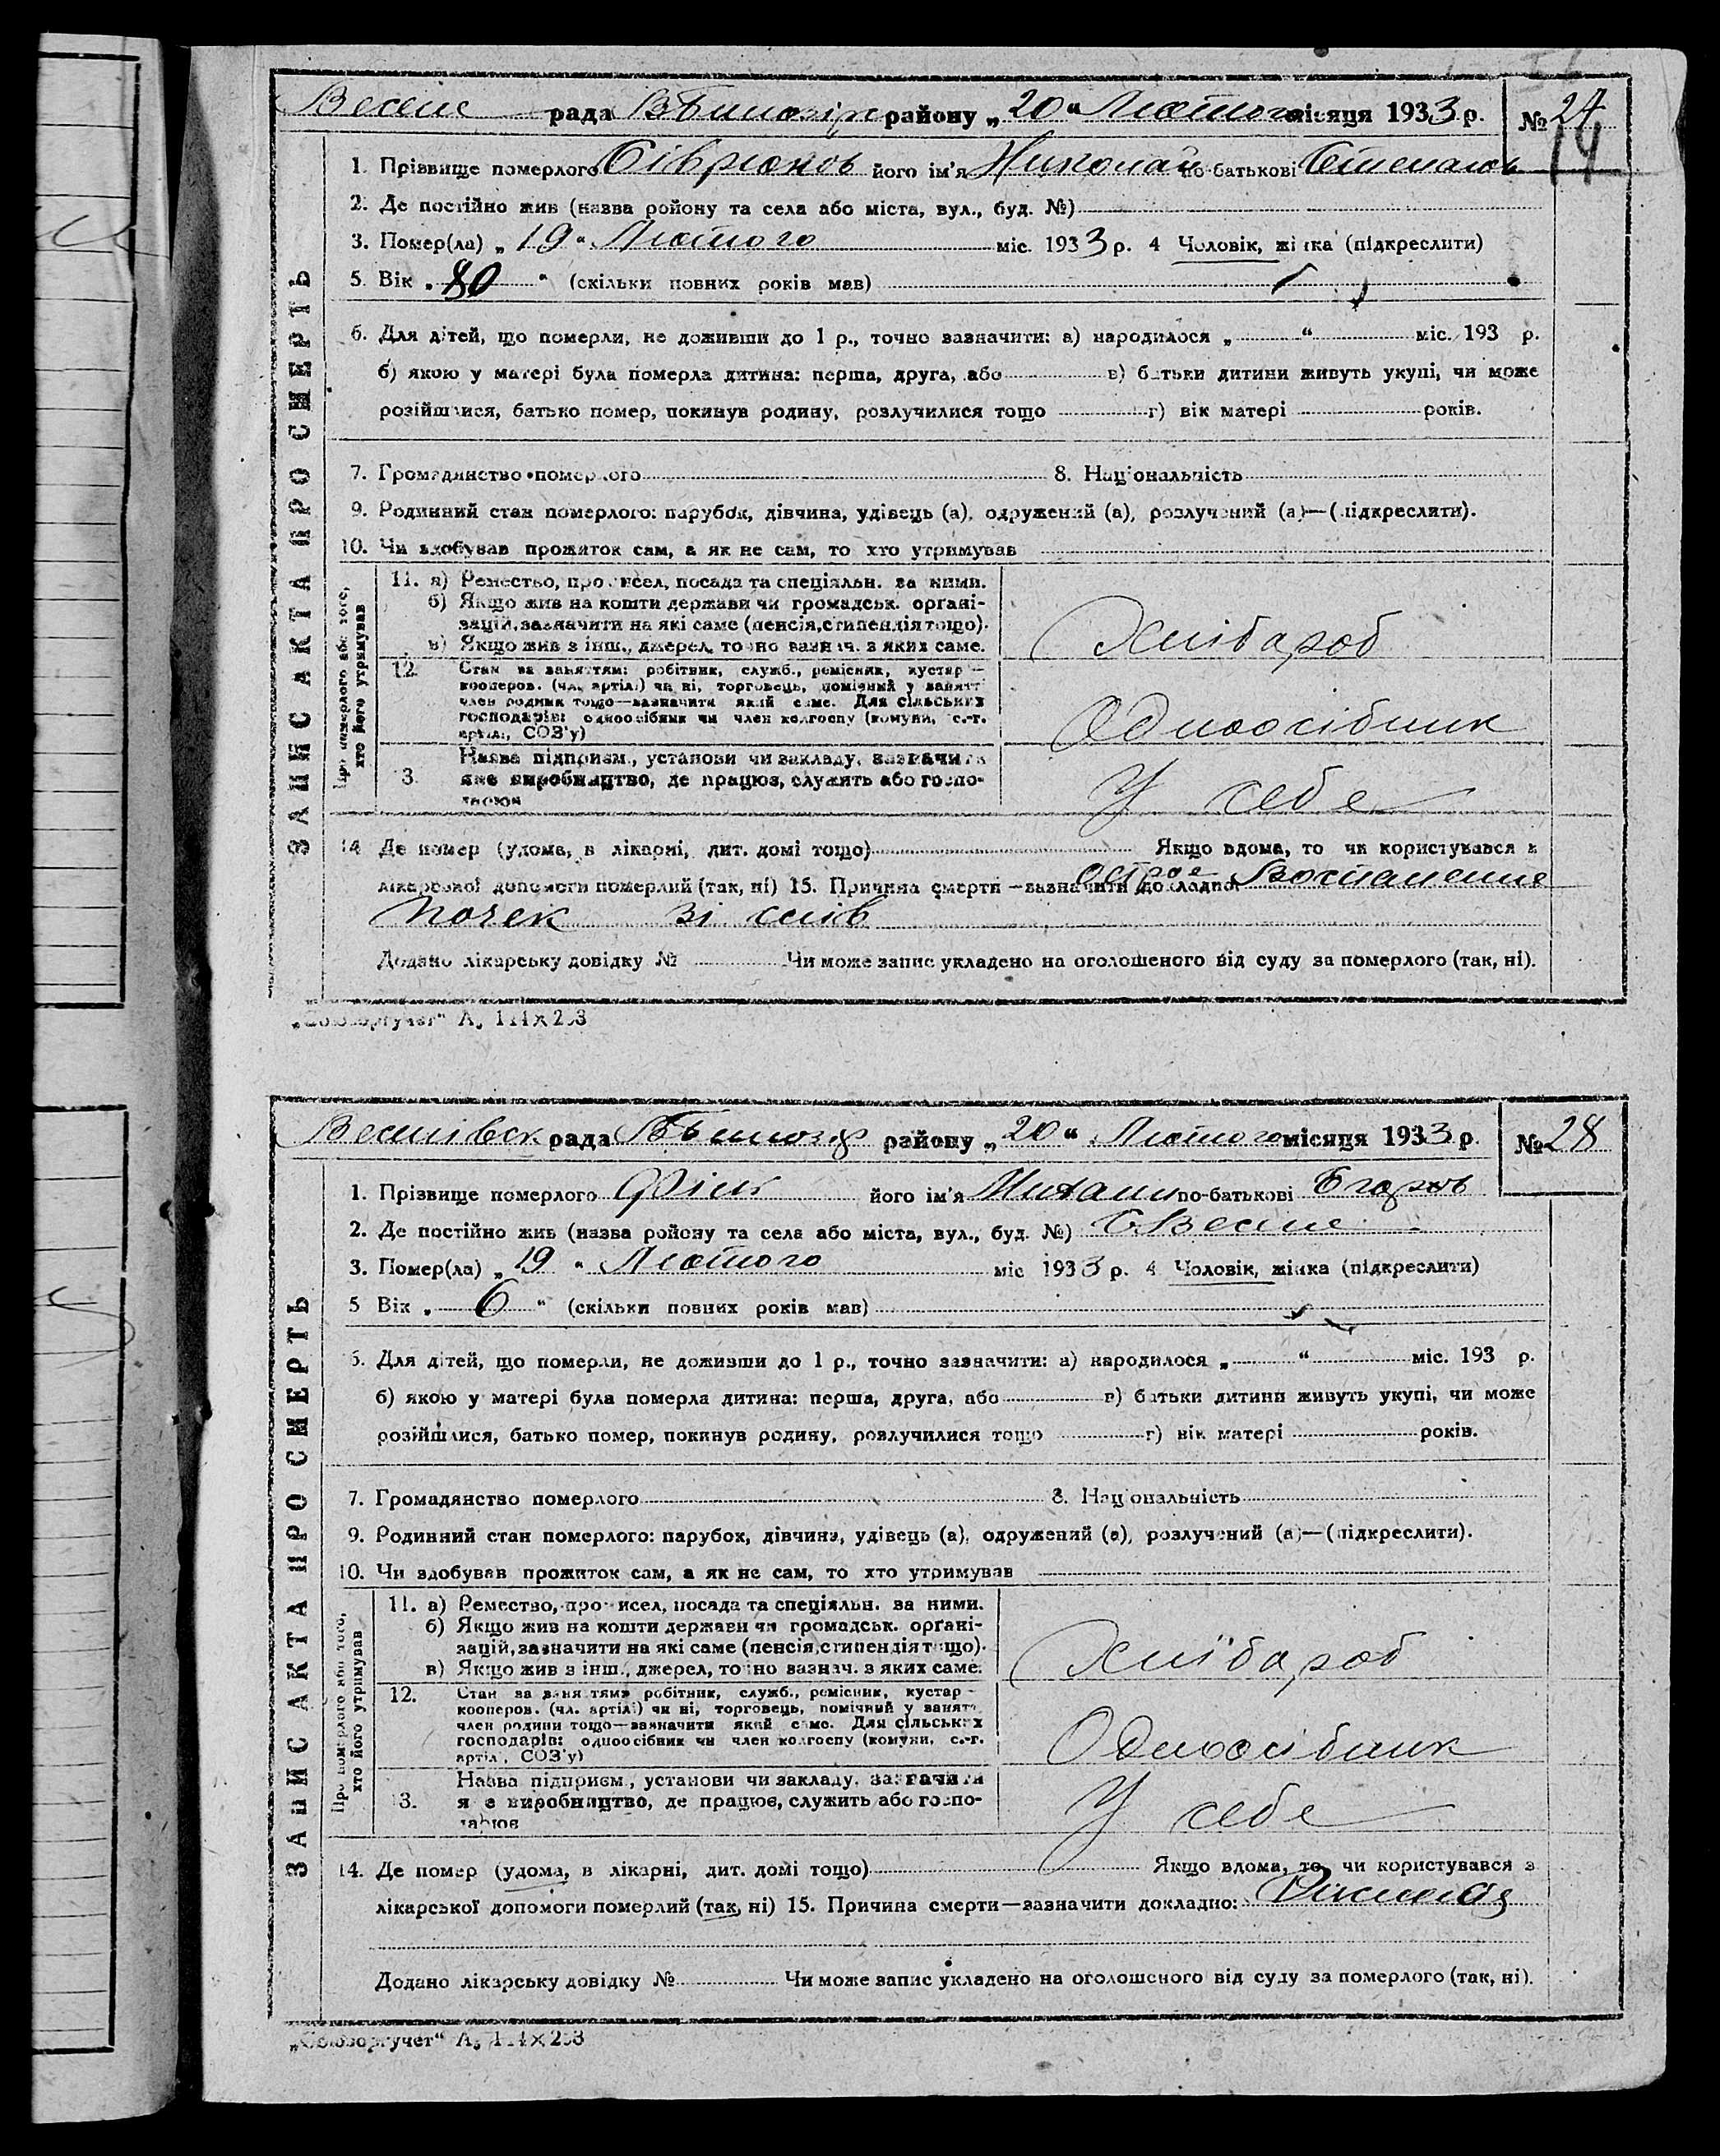 рада району „20“ Лютого місяця 1933 р. № 24
14
1. Прізвище померлого його ім'я Николай по-батькові Степанов
2. Де постійно жив (назва ройону та села або міста, вул., буд. №)
3. Помер(ла) „19“ Лютого міс. 1933 р. 4 Чоловік, жінка (підкреслити)
5. Вік „80“ (скільки повних років мав)
6. Для дітей, що померли, не доживши до 1 р., точно зазначити: а) народилося „ “ міс. 193 р.
б) якою у матері була померла дитина: перша, друга, або в) батьки дитини живуть укупі, чи може
розійшлися, батько помер, покинув родину, розлучилися тощо г) вік матері років.
7. Громадянство померлого 8. Національність
9. Родинний стан померлого: парубок, дівчина, удівець (а), одружений (а), розлучений (а)—(підкреслити).
10. Чи здобував прожиток сам, а як не сам, то хто утримував
ЗАПИС АКТА ПРО СМЕРТЬ
Про померлого або того,
хто його утримував
11. а) Ремество, промисел, посада та спеціяльн. за ними.
б) Якщо жив на кошти держави чи громадськ. органі-
зацій, зазначити на які саме (пенсія, стипендія тощо).
в) Якщо жив з інш., джерел, точно вазнач. з яких саме.
Хлібароб
12. Стан за заняттям: робітник, служб., ремісник, кустар—
кооперов. (чл. артілі) чи ні, торговець, помічный у занятт
член родини тощо—зазначити який саме. Для сільських
господарів: одноосібник чи член колгоспу (комуни, с.-г.
артіл., СОЗ'у)
Одноосібник
13. Назва підприєм., установи чи закладу, зазначити
яке виробництво, де працює, служить або госпо-
дарює
У себе
14 Де помер (удома, в лікарні, дит. домі тощо) Якщо вдома, то чи користувався з
лікарської допомоги померлий (так, ні) 15. Причина смерти—зазначити докладно: острое Воспаление
почек зі слів
Додано лікарську довідку № Чи може запис укладено на оголошеного від суду за померлого (так, ні).
„Союзоргучет“ А₅ 144×203
Веселівськ рада району „20“ Лютого місяця 1933 р. № 28
1. Прізвище померлого його ім'я Михаил по-батькові Егоров
2. Де постійно жив (назва ройону та села або міста, вул., буд. №) С Веселе
3. Помер(ла) „19“ Лютого міс 1933 р. 4 Чоловік, жінка (підкреслити)
5 Вік „6“ (скільки повних років мав)
6. Для дітей, що померли, не доживши до 1 р., точно зазначити: а) народилося „ “ міс. 193 р.
б) якою у матері була померла дитина: перша, друга, або в) батьки дитини живуть укупі, чи може
розійшлися, батько помер, покинув родину, розлучилися тощо г) вік матері років.
7. Громадянство померлого 8. Національність
9. Родинний стан померлого: парубок, дівчина, удівець (а), одружений (а), розлучений (а)—(підкреслити).
10. Чи здобував прожиток сам, а як не сам, то хто утримував
ЗАПИС АКТА ПРО СМЕРТЬ
Про померлого або того,
хто його утримував
11. а) Ремество, промисел, посада та спеціяльн. за ними.
б) Якщо жив на кошти держави чи громадськ. органі-
зацій, зазначити на які саме (пенсія, стипендія тощо).
в) Якщо жив з інш., джерел, точно вазнач. з яких саме.
Хлібароб
12. Стан за заняттям: робітник, служб., ремісник, кустар—
кооперов. (чл. артілі) чи ні, торговець, помічный у занятт
член родини тощо—зазначити який саме. Для сільських
господарів: одноосібник чи член колгоспу (комуни, с.-г.
артіл., СОЗ'у)
Одноосібник
13. Назва підприєм., установи чи закладу, зазначити
яке виробництво, де працює, служить або госпо-
дарює
У себе
14. Де помер (удома, в лікарні, дит. домі тощо) Якщо вдома, то чи користувався з
лікарської допомоги померлий (так, ні) 15. Причина смерти—зазначити докладно:
Додано лікарську довідку № Чи може запис укладено на оголошеного від суду за померлого (так, ні).
„Союзоргучет“ А₅ 144×203